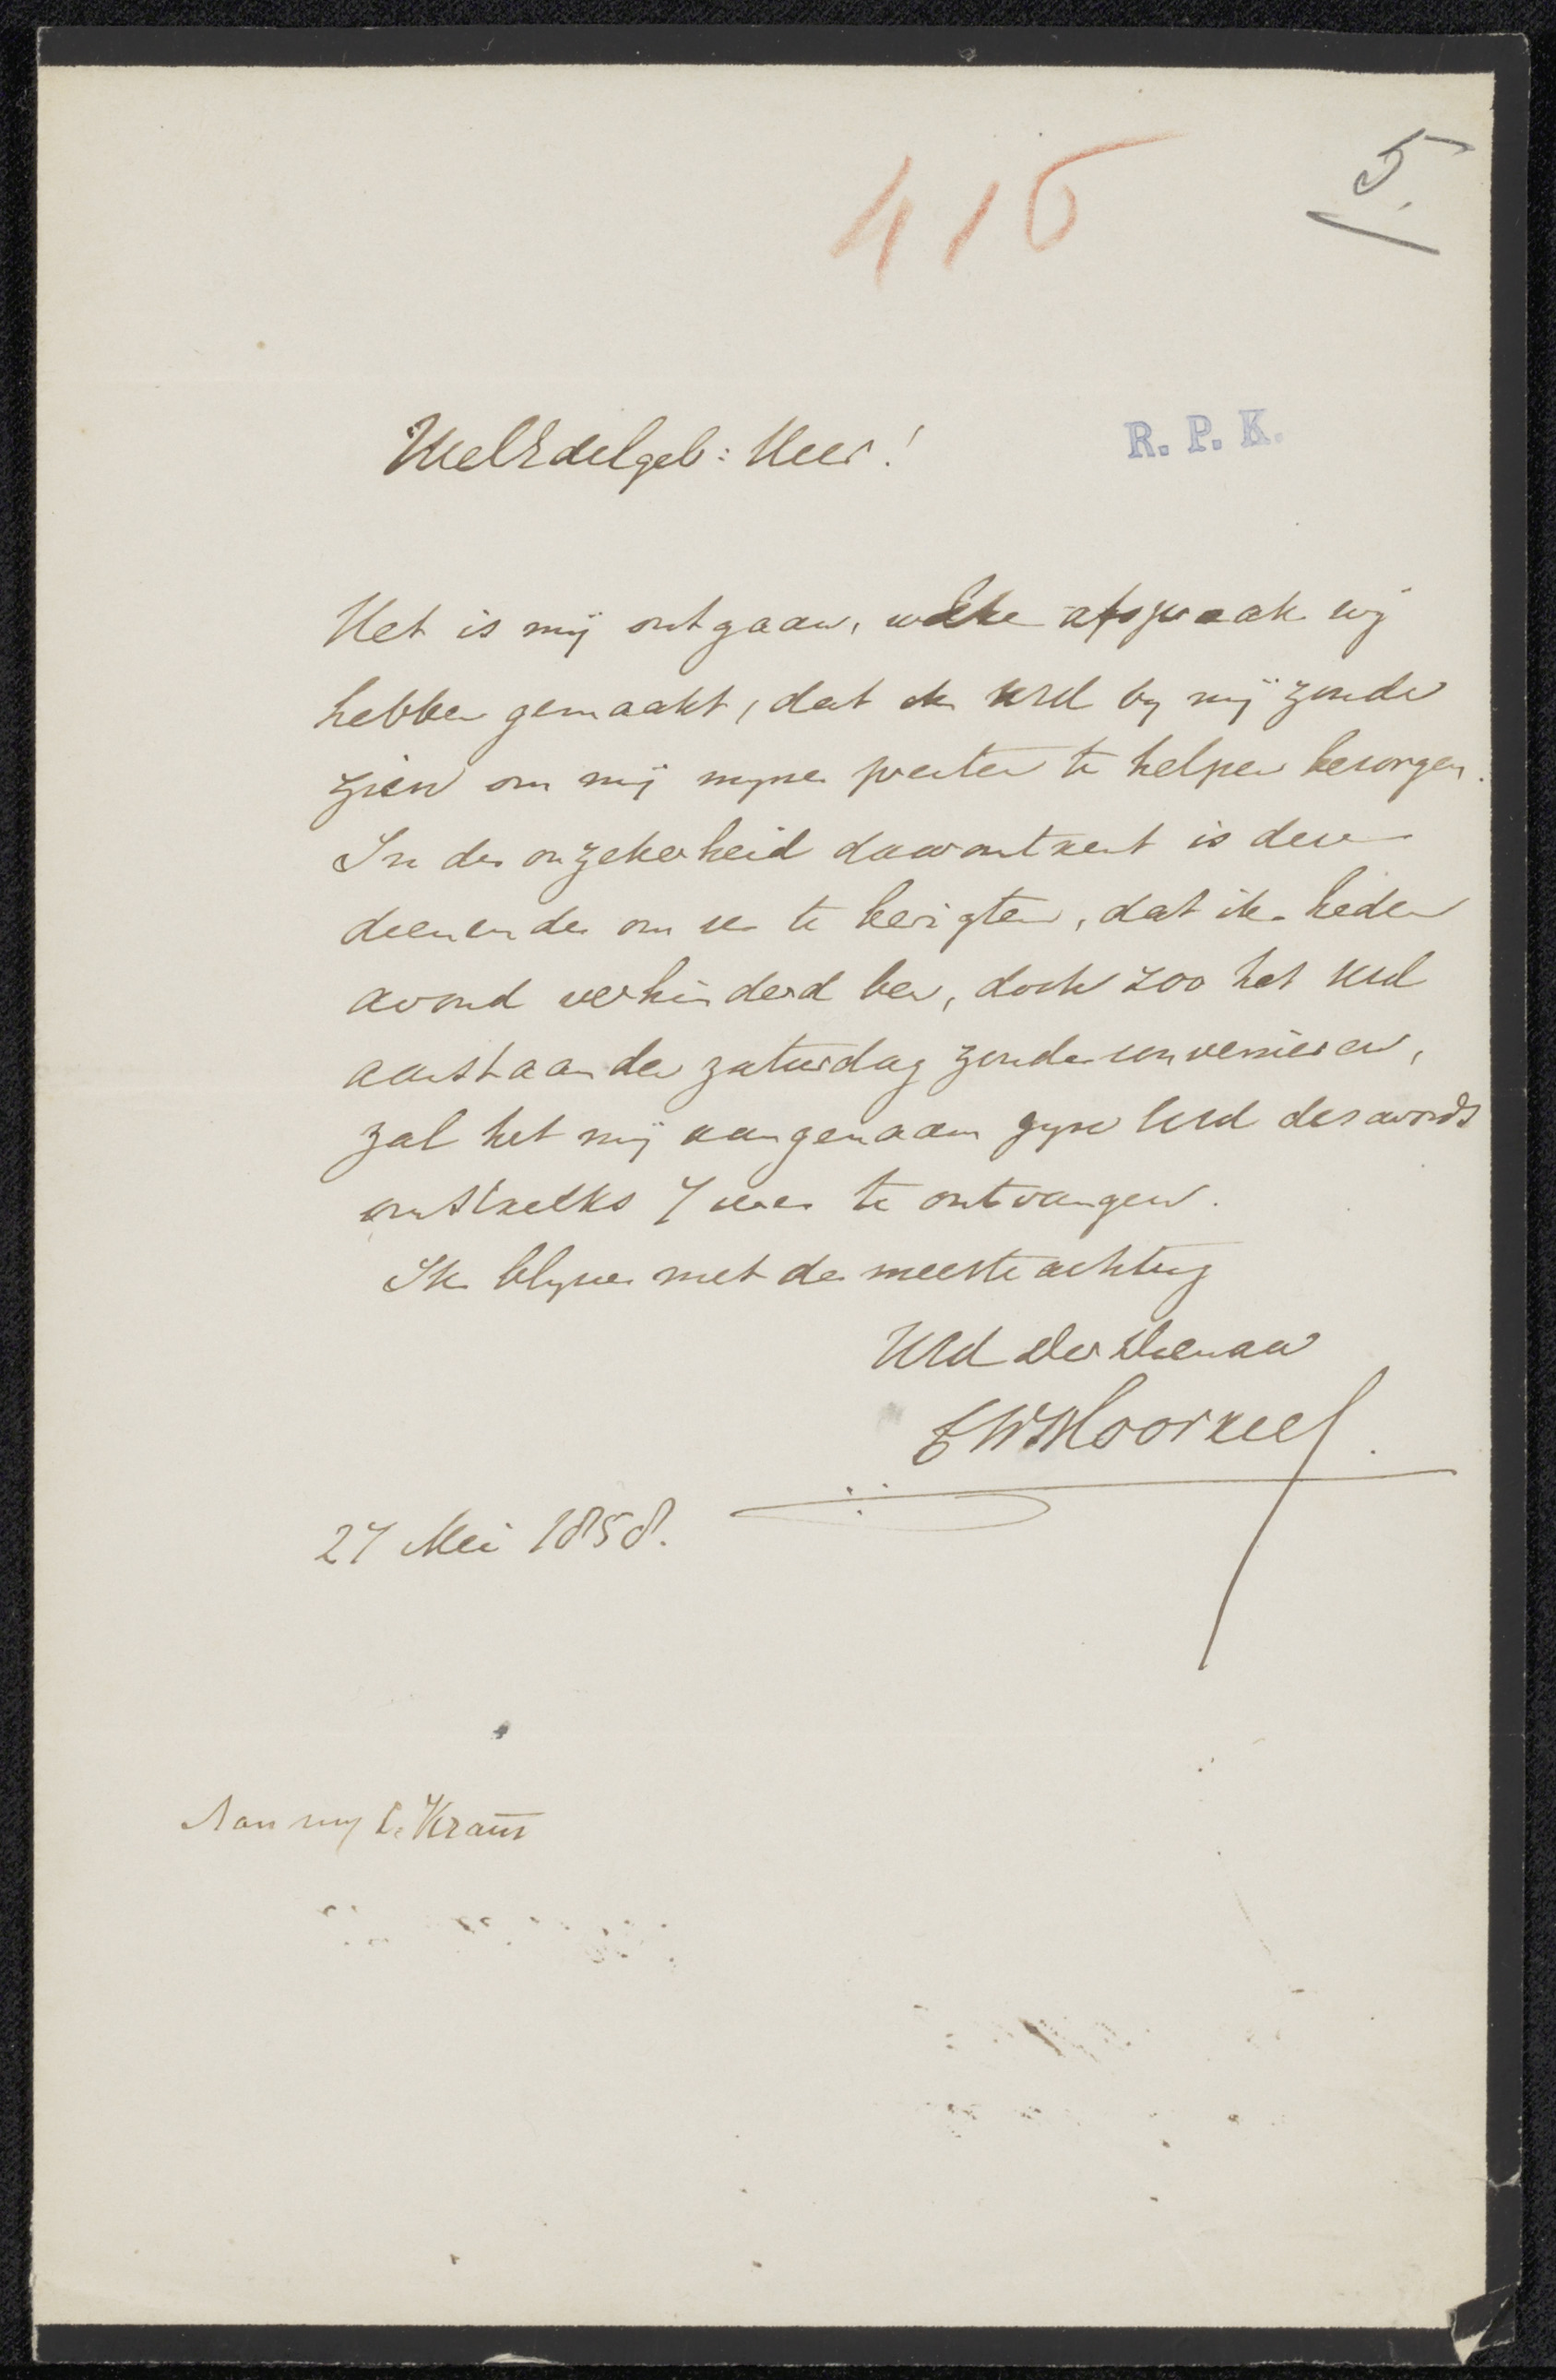 416
5.
WelEdelgeb: Heer!
R. P. K.
Het is mij ontgaan, welke afspraak wij
hebben gemaakt, dat ik UEd by mij zoude
zien om mij myne prenten te helpen bezorgen.
In de onzekerheid daaromtrent is deze
dienende om u te berigten, dat ik heden
avond verhinderd ben, doch zoo het UEd
aanstaanden zaturdag zoude convenieren,
zal het mij aangenaam zyn UEd des avonds
omstreeks 7 uur te ontvangen.
Ik blyve met de meeste achting
UEd Dw Dienaar
27 Mei 1858.
Aan my Kram